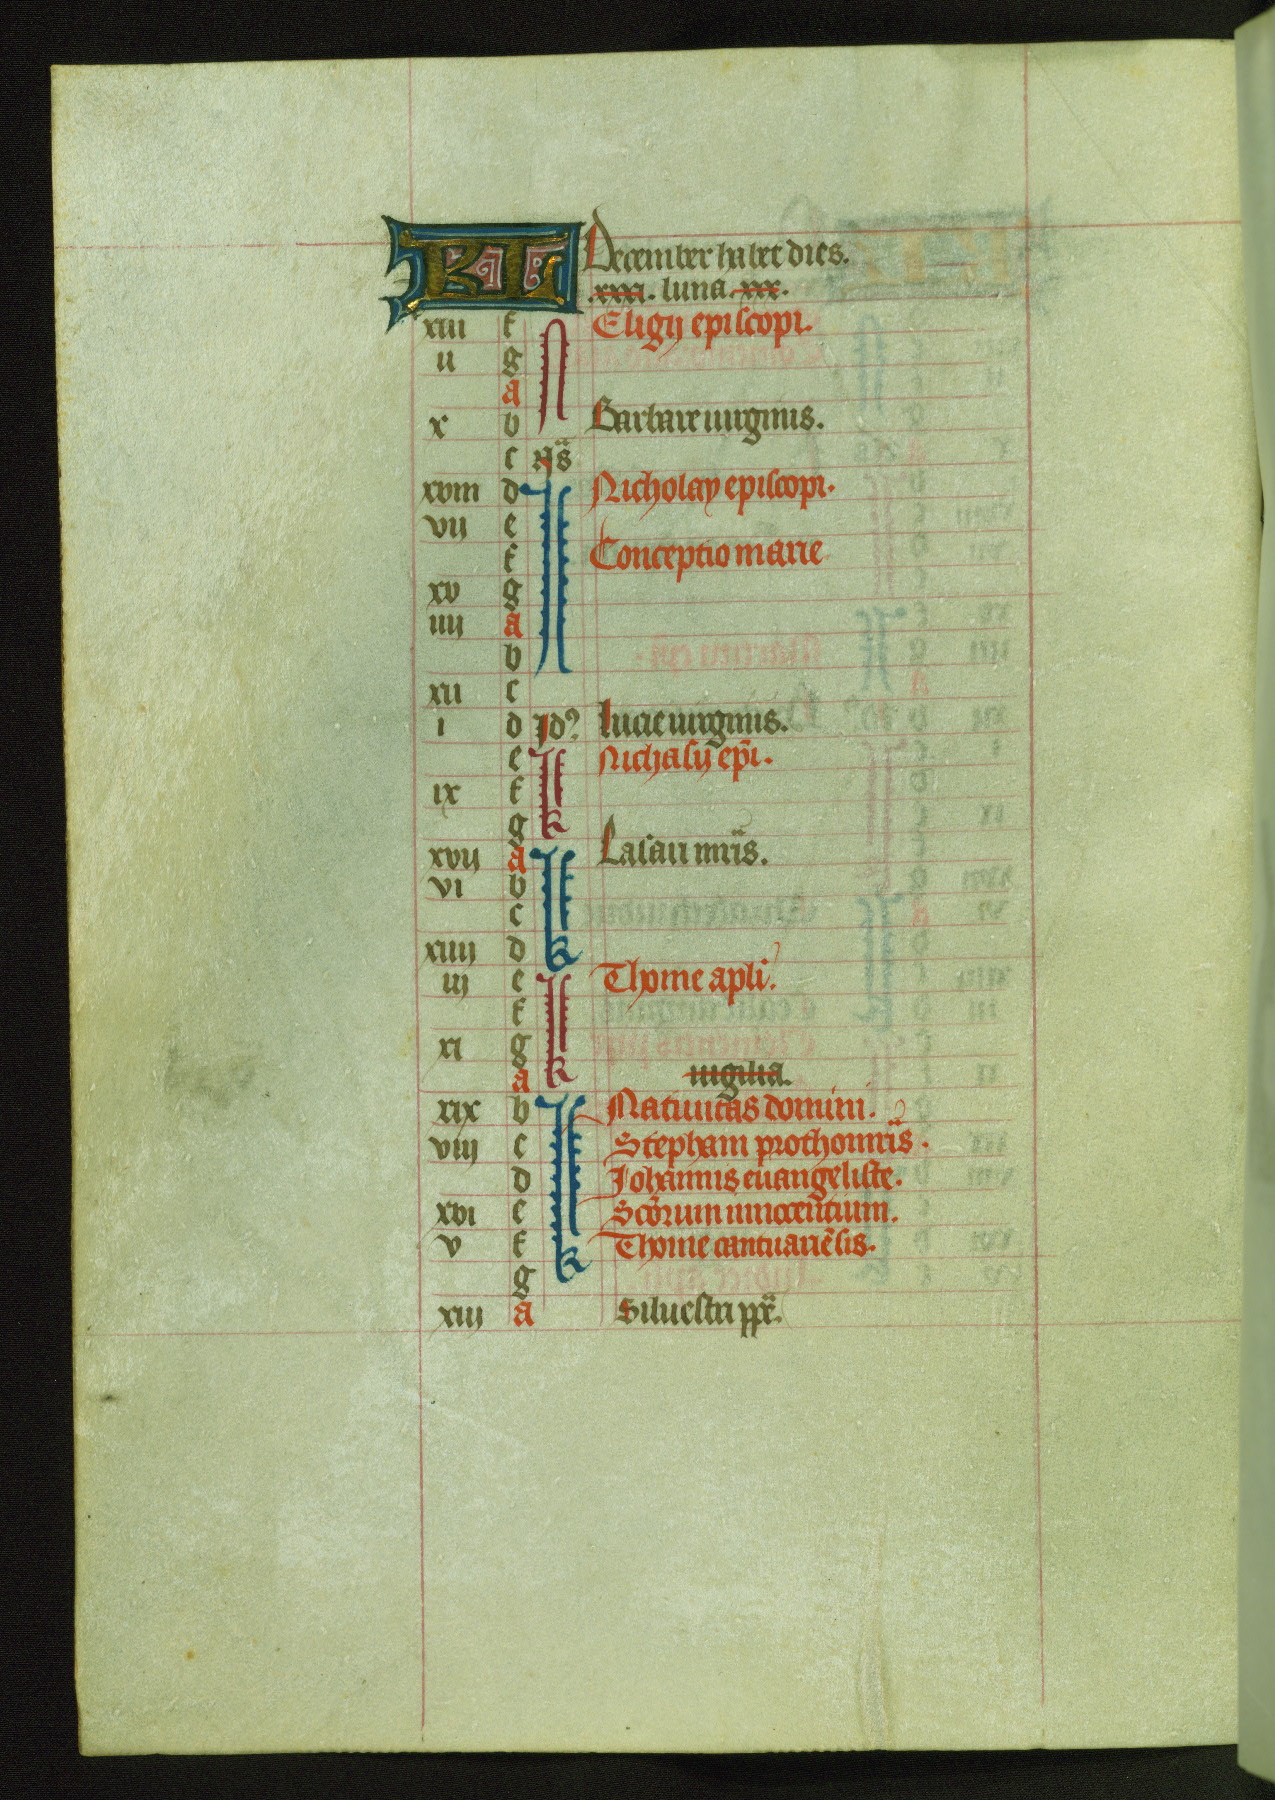 KL December habet dies.
.xxxi. luna .xxx.
xiii f N Eligij episcopi.
ii g
a
x b Barbare uirginis.
c Ns
xviii d I Nicholay episcopi.
vii e
f Conceptio marie
xv g
iiij a
b
xii c
i d Id9 Lucie uirginis.
e k Nichasij epi.
ix f
g
xvij a k Lasari mris.
vi b
c
xiiij d
iij e k Thome apli.
f
xi g
a uigilia.
xix b k Natiuitas domini.
viij c Stephani prothomris.
d Johannis euangeliste.
xvi e Scorum innocentium.
v f Thome cantuariesis.
g
xiij a Siluestri pp.